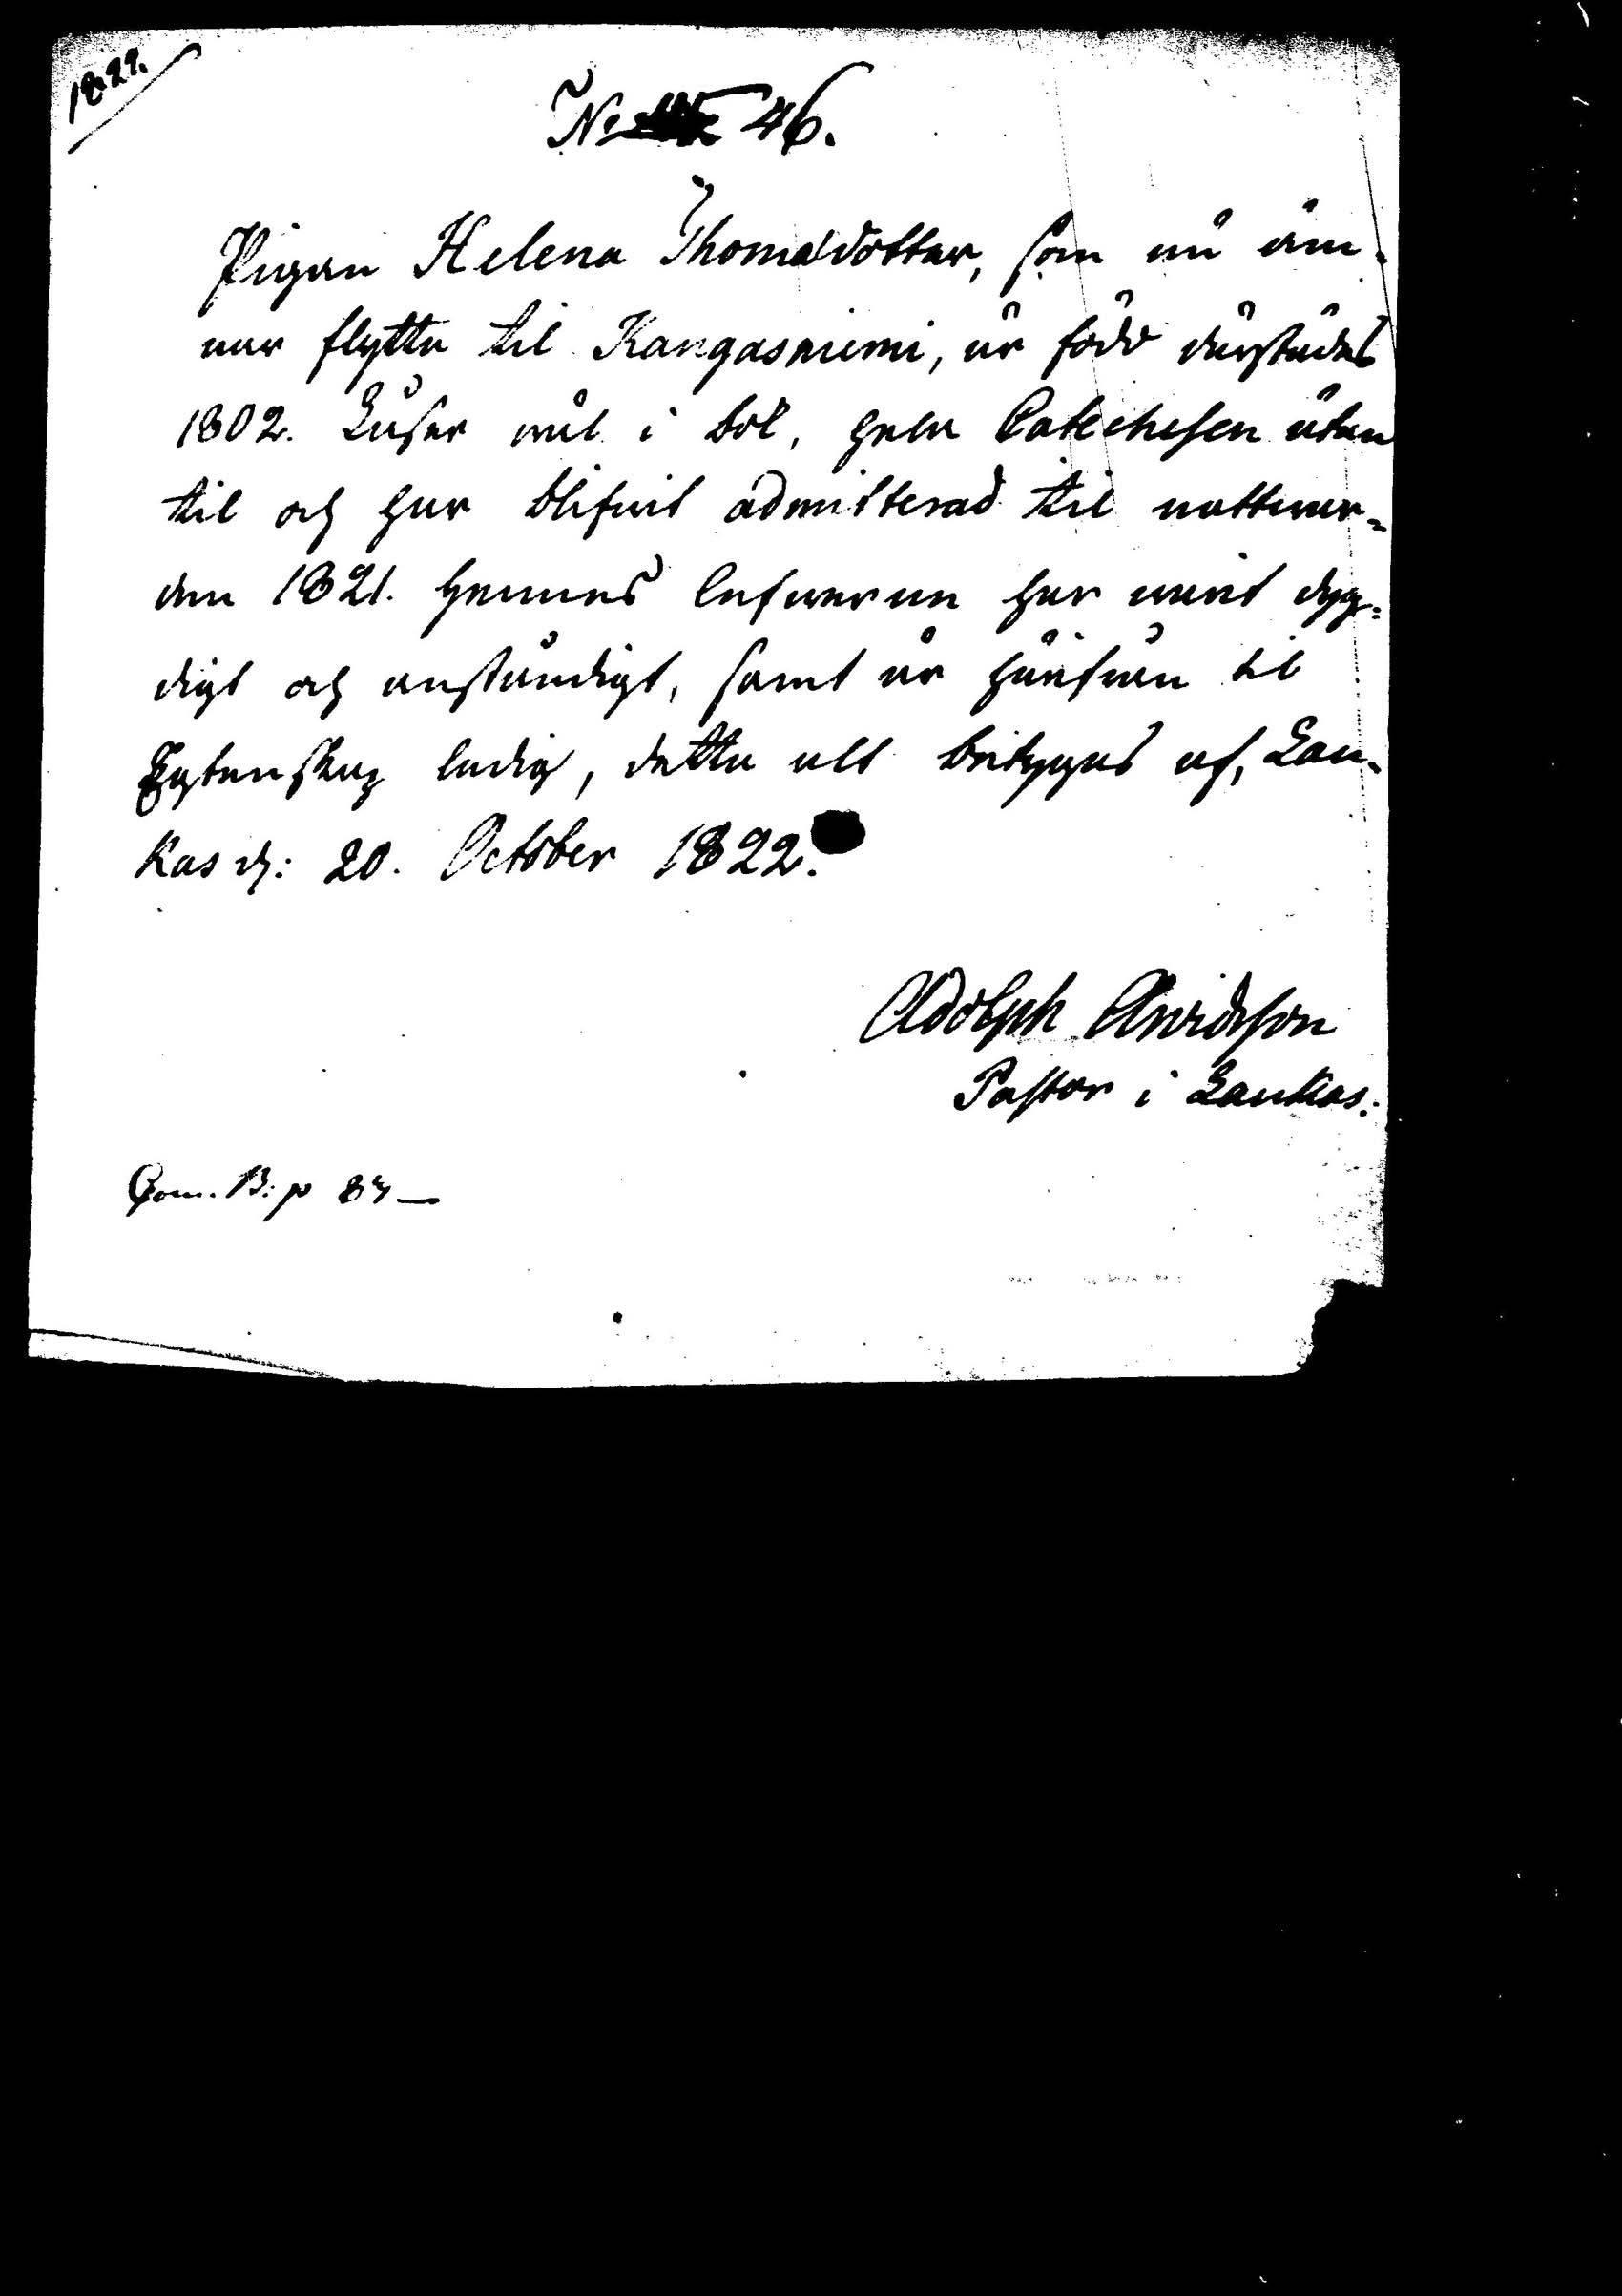 1822.
No 46.
Pigan Helena Thomasdotter, som nu äm-
nar flytta til Kangasniemi, är född därstädes
1802. Läser väl i bok, hela Catechesen utan
til och har blifvit admitterad til nattvar-
den 1821. Hennes lefverne har varit dyg-
digt och anständigt, samt är härifrån til
Ägtenskap ledig, detta alt betygas af, Lau-
kas d: 20. October 1822.
Adolph Arvidsson
Pastor i Laukas.
Com. B: p 84